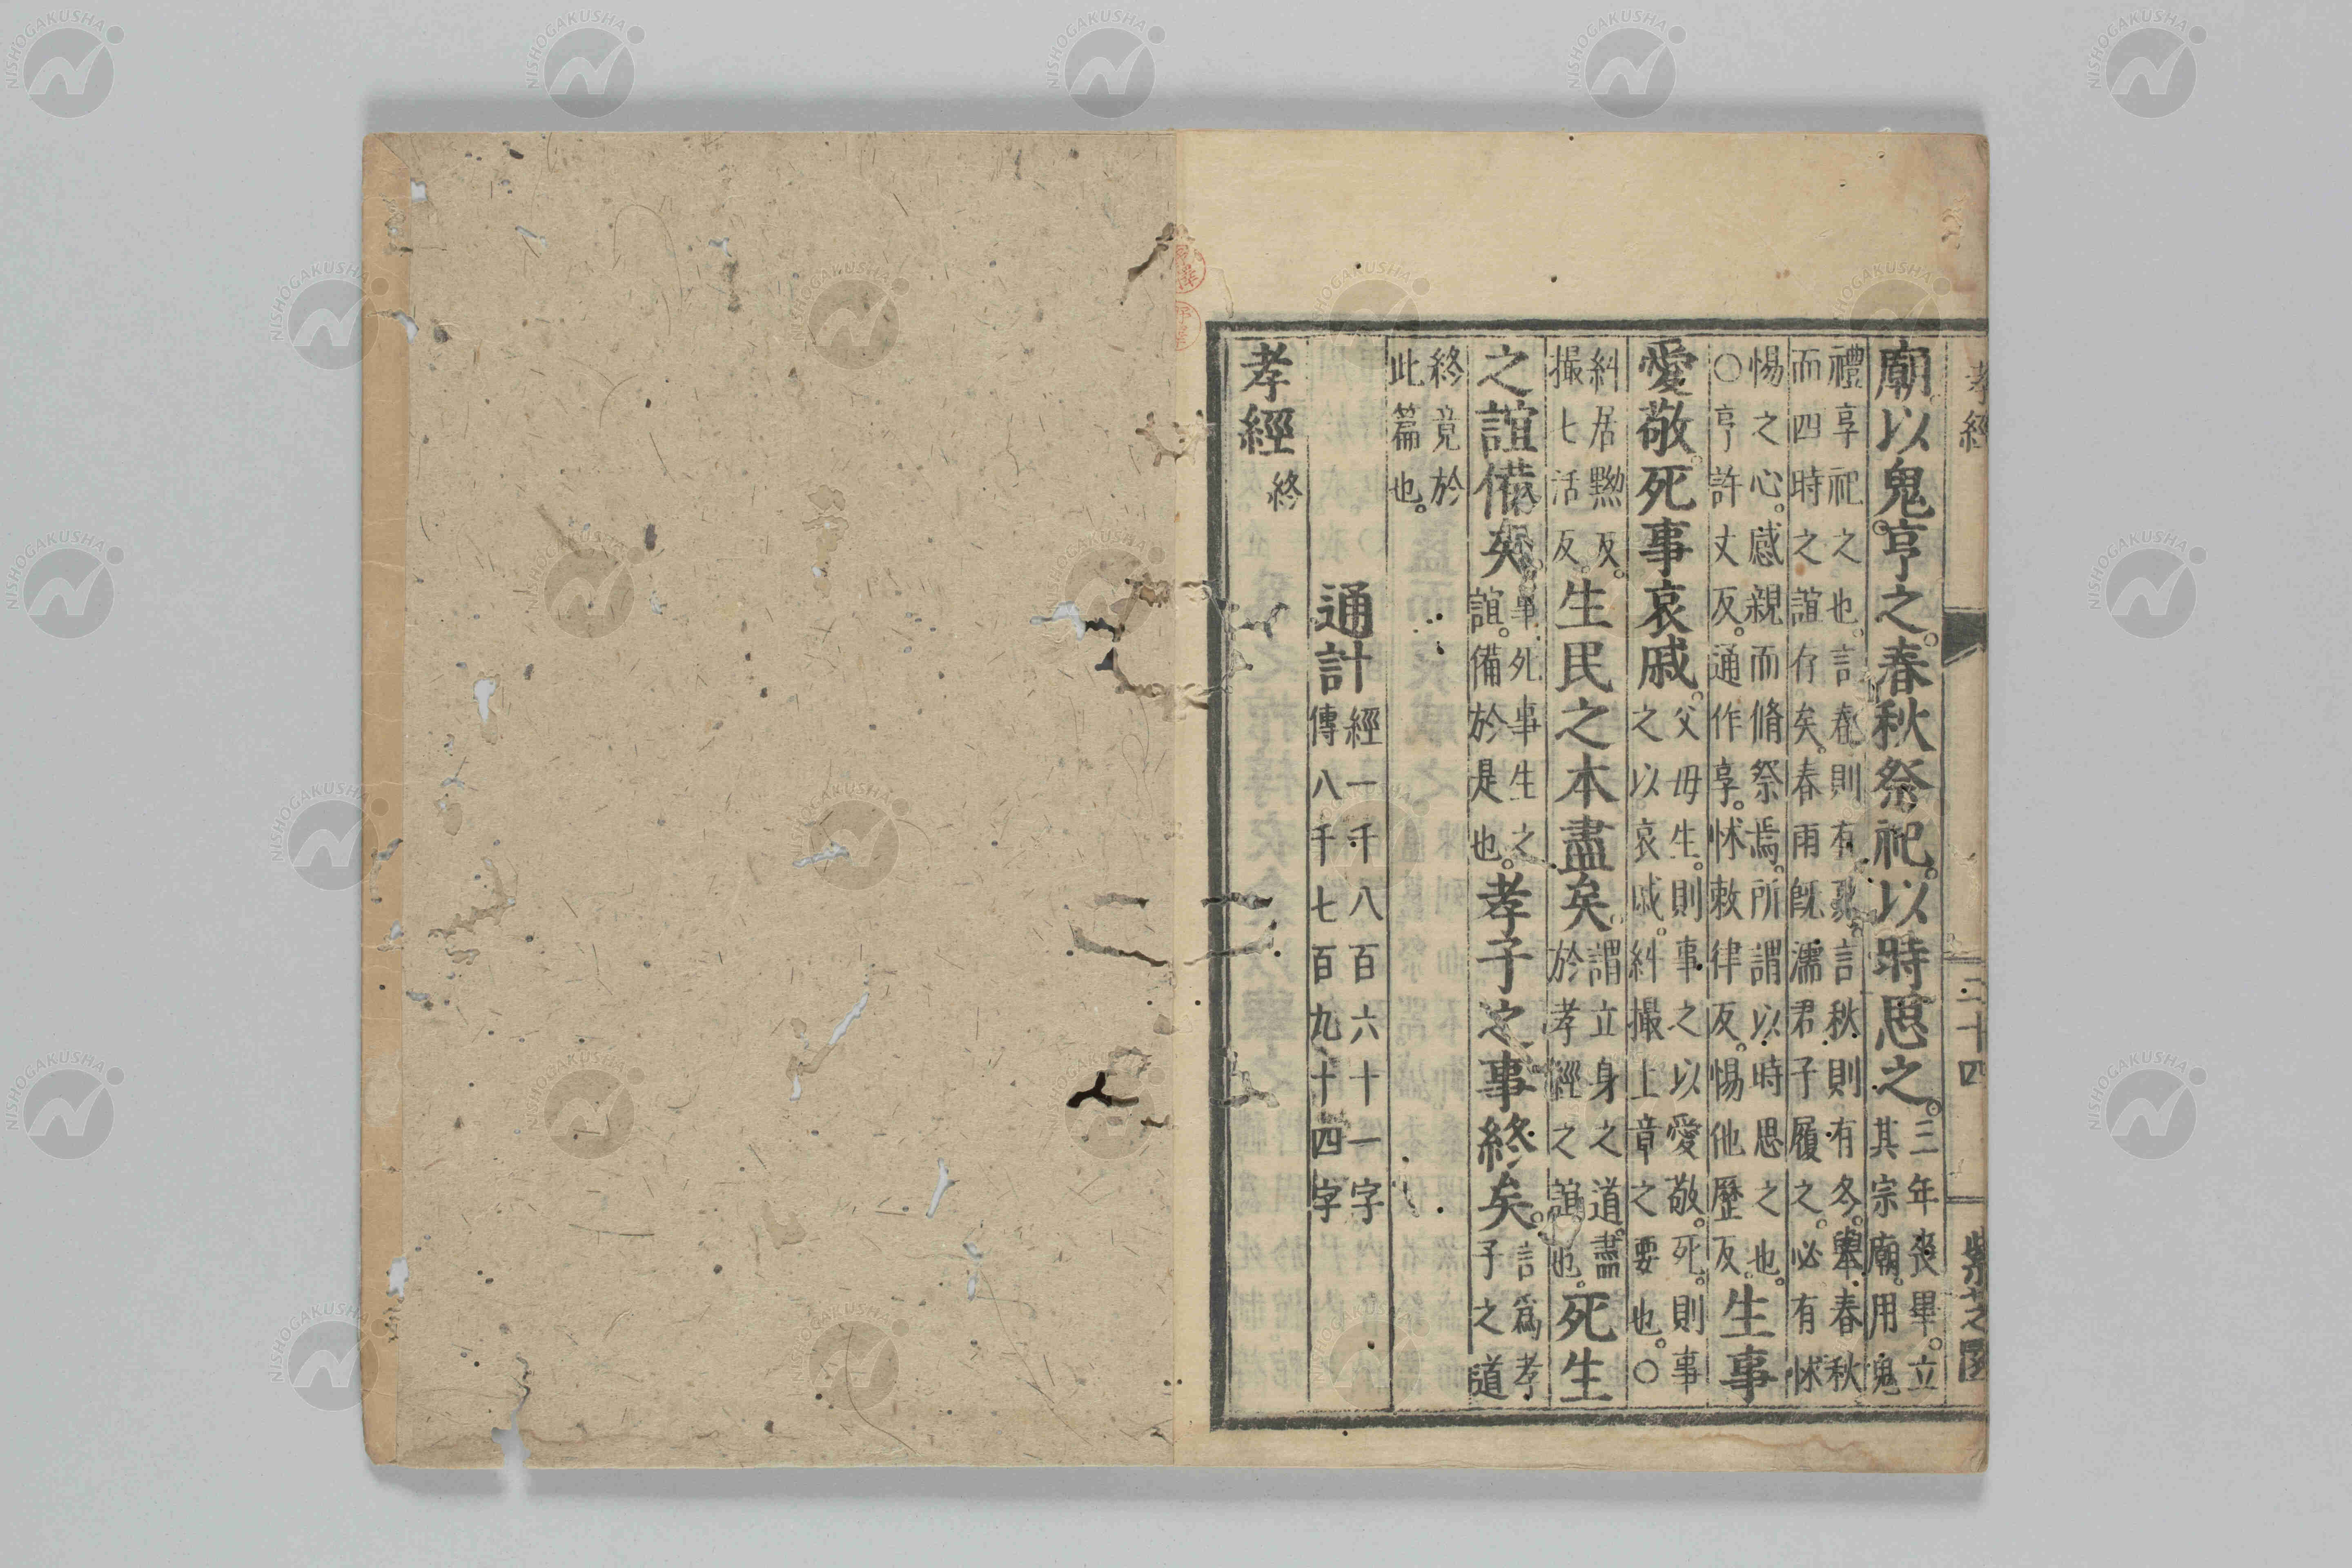 孝經
三十四
紫芝園
廟以鬼亨之春秋祭祀以時思之三年喪畢立
其宗廟用鬼
禮享祀之也言春則有言秋則有冬舉春秋
而四時之誼存矣春雨既濡君子履之必有怵
惕之心感親而脩祭焉所謂以時思之也
○亨許丈反通作享怵敕律反惕他歷反生事
愛敬死事哀戚父母生則事之以愛敬死則事
之以哀戚糾撮上章之要也○
糾居黝反
撮七活反生民之本盡矣謂立身之道盡
於孝經之誼也死生
之誼備矣事死事生之
誼備於是也孝子之事終矣言爲孝
子之道
終竟於
此篇也
通計經一千八百六十一字
傳八千七百九十四字
孝經終
NISHOGAKUSHA